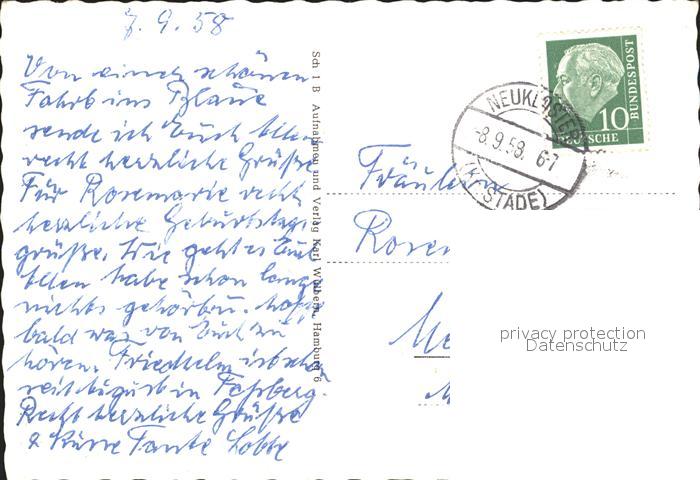 7.9.58
Von einer schönen
Fahrt ins Blaue
sende ich Euch allen
recht herzliche Grüße
Für Rosemarie recht
herzliche Geburtstags
grüße. Wie geht es Euch
allen habe schon lange
nichts gehört u. hoffe
bald was von Euch zu
hören. Friedhelm ist schon
seit August in Faßberg.
Recht herzliche Grüße
& Küsse Tante
Sch 1 B Aufnahmen und Verlag Karl Wülbern, Hamburg 6
10
DEUTSCHE
BUNDESPOST
NEUKLOSTER
-8.9.58. 6-7
(Kr. STADE)
Fräulein
Rosem
privacy protection
Datenschutz